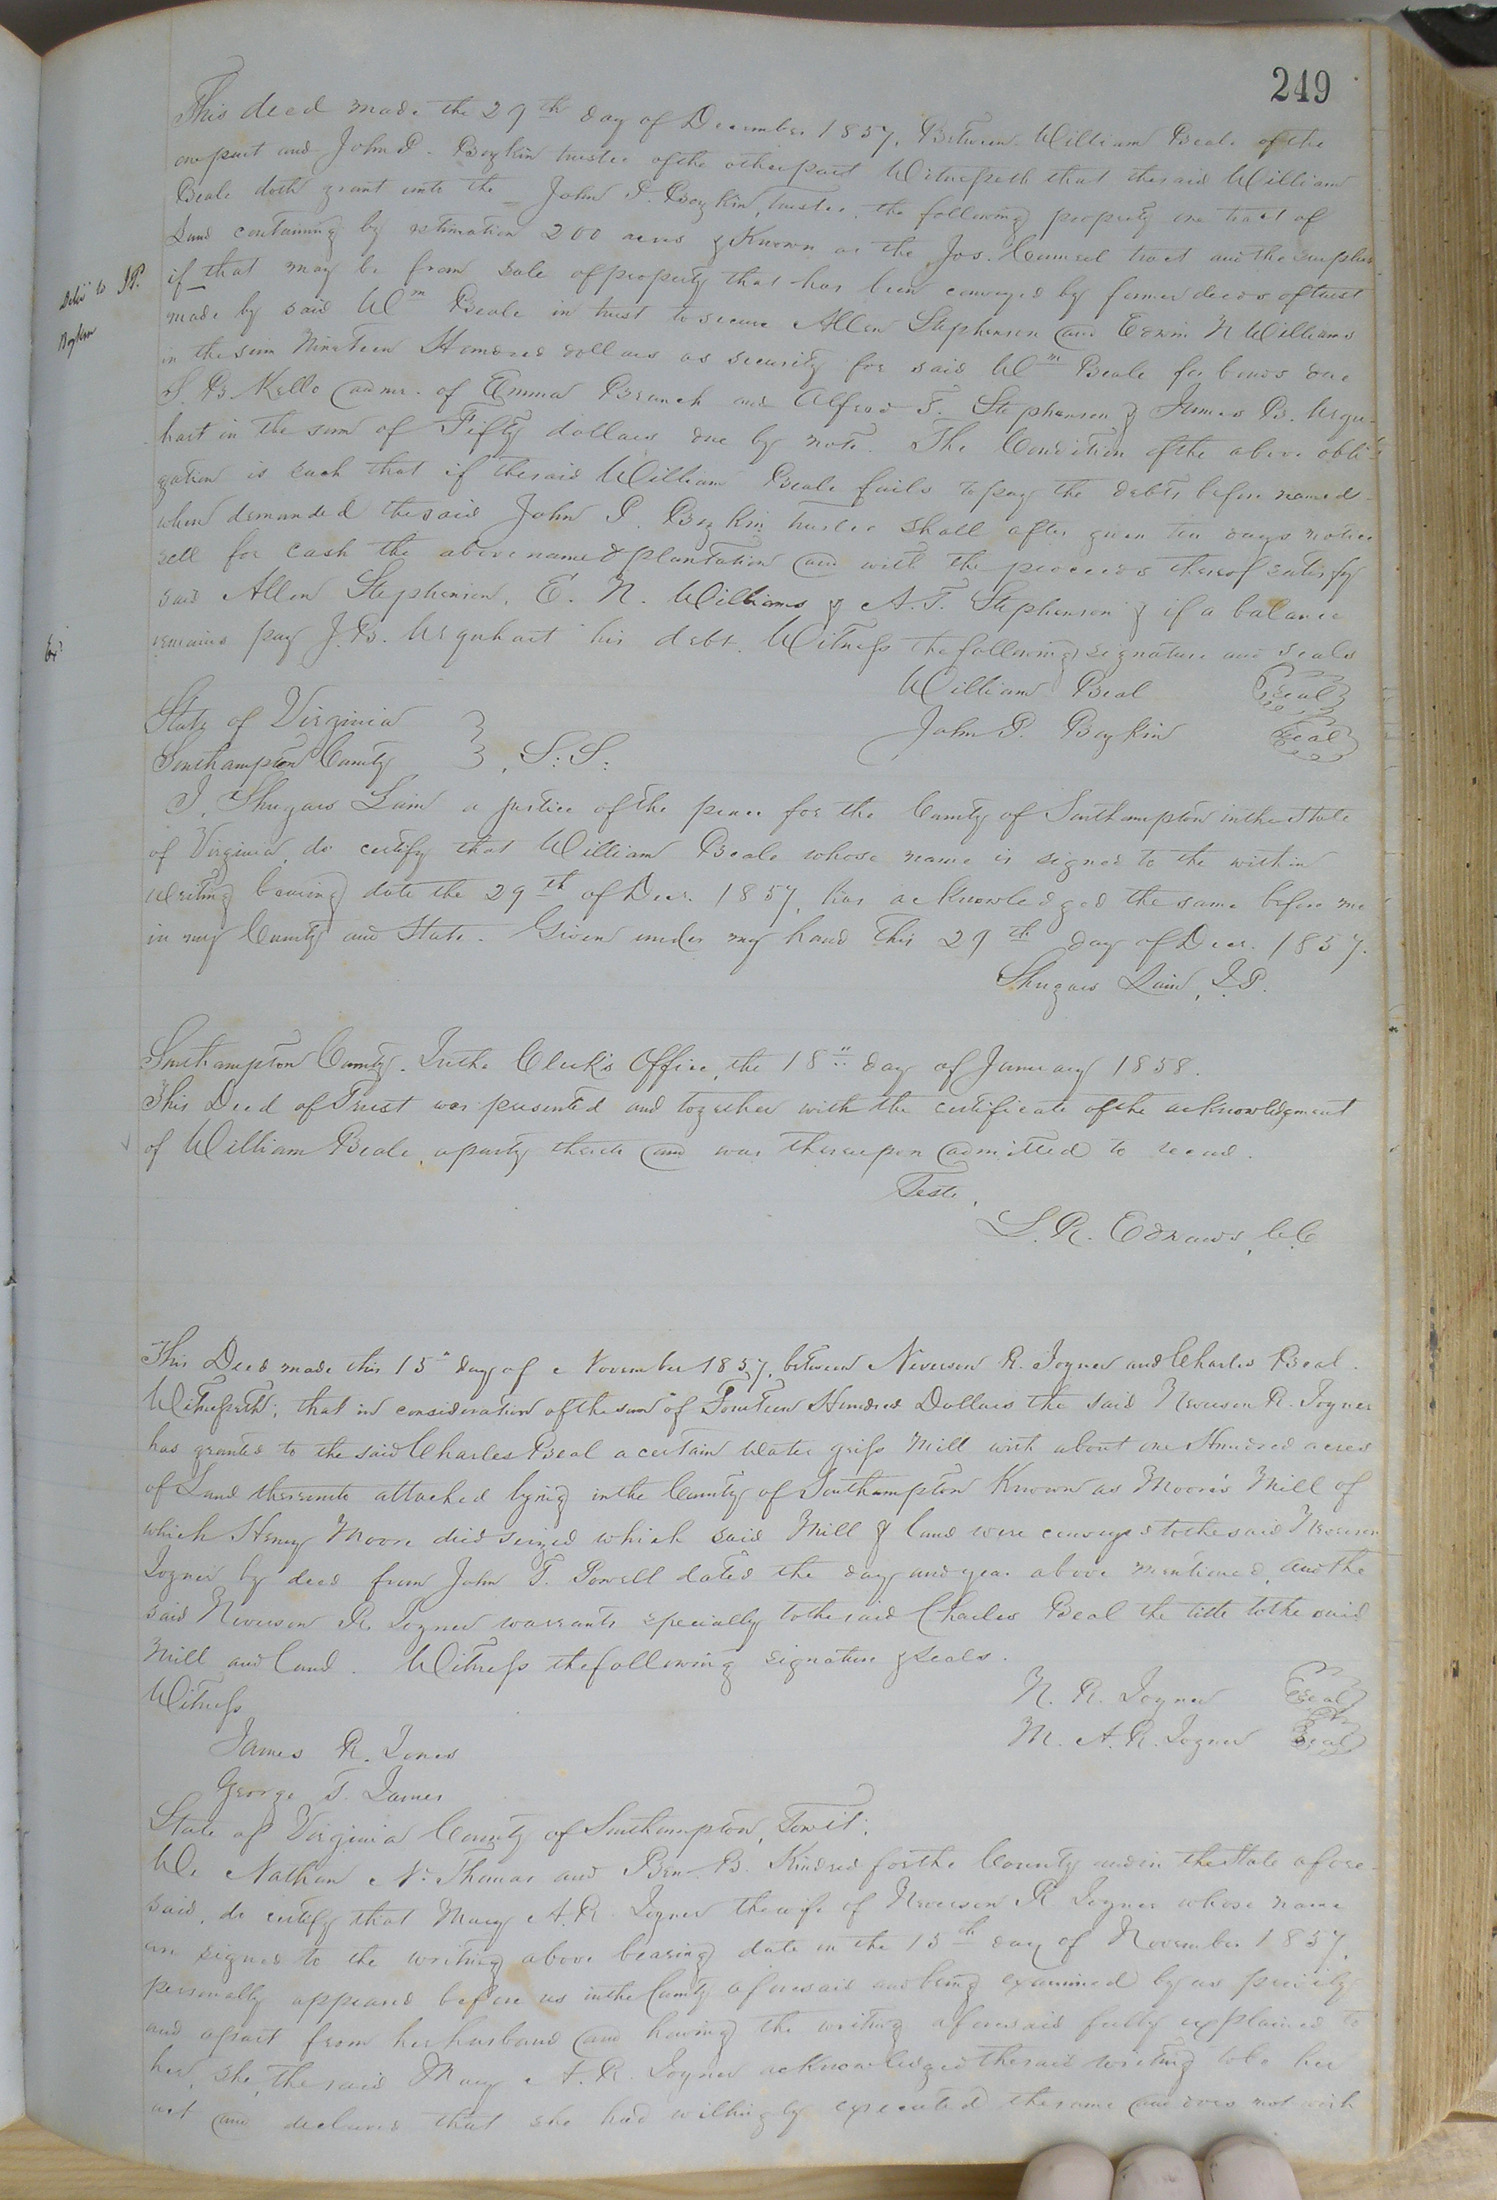 249
This deed made the 29th day of December 1857, Between William Beale of the
one part and John P. Boykin trustee of the other part Witnesseth that the said William
Beale doth grant unto the John P. Boykin, trustee, the following property one tract of
Land containing by estimation 200 acres & Known as the Jos. Council tract and the surplus
if that may be from sale of property that has been conveyed by former deeds of trust
Deld to J P.
Boykin
made by said Wm Beale in trust to secure Allen Stephenson and Edwin N Williams
in the sum Nineteen Hundred dollars as security for said Wm Beale for bonds due
S. B. Kello admr. of Emma Branch and Alfred T. Stephenson & James B. Urqu-
hart in the sum of Fifty dollars due by note. The Condition of the above obli-
gation is such that if the said William Beale fails to pay the debts before named
when demanded the said John P. Boykin trustee shall after given ten days notice
sell for cash the above named plantation and with the proceeds thereof satisfy
said Allen Stephenson, E. N. Williams & A. T. Stephenson & if a balance
remains pay J. B. Urquhart his debt. Witness the following signature and seals
Ex'd
William Beal Seal
John P. Boykin Seal
State of Virginia
Southampton County, S: S:
I, Shugars Lain a justice of the peace for the County of Southampton in the State
of Virginia, do certify that William Beale whose name is signed to the within
writing bearing date the 29th of Decr. 1857, has acknowledged the same before me
in my County and State. Given under my hand this 29th day of Decr. 1857.
Shugars Lain, J.P.
Southampton County. In the Clerk's Office, the 18" day of January 1858.
This Deed of Trust was presented and together with the certificate of the acknowledgment
of William Beale, a party thereto and was thereupon admitted to record.
Teste,
L. R. Edwards, C.C
This Deed made this 15" day of November 1857, between Neverson R. Joyner and Charles Beal.
Witnesseth; that in consideration of the sum of Fourteen Hundred Dollars the said Neverson R. Joyner
has granted to the said Charles Beal a certain Water griss Mill with about one Hundred acres
of Land thereunto attached lying in the County of Southampton Known as Moore's Mill of
which Henry Moore died seized which said Mill & land were conveyed to the said Neverson
Joyner by deed from John T. Powell dated the day and year above mentioned, and the
said Neverson R. Joyner warrants specially to the said Charles Beal the title to the said
Mill and land. Witness the following signature & seals.
Witness
N. R. Joyner Seal
M. A. R. Joyner Seal
James R. Jones
George T. James
State of Virginia County of Southampton, Towit:
We Nathan N. Thomas and Ben. B. Kindred for the County and in the State afore-
said, do certify that Mary A. R. Joyner the wife of Neverson R Joyner whose name
an signed to the writing above bearing date on the 15th day of November 1857,
personally appeared before us in the County aforesaid and being examined by us privily
and apart from her husband and having the writing aforesaid fully explained to
her, she, the said Mary A. R. Joyner acknowledged the said writing to be her
act and declared that she had willingly executed the same and does not wish